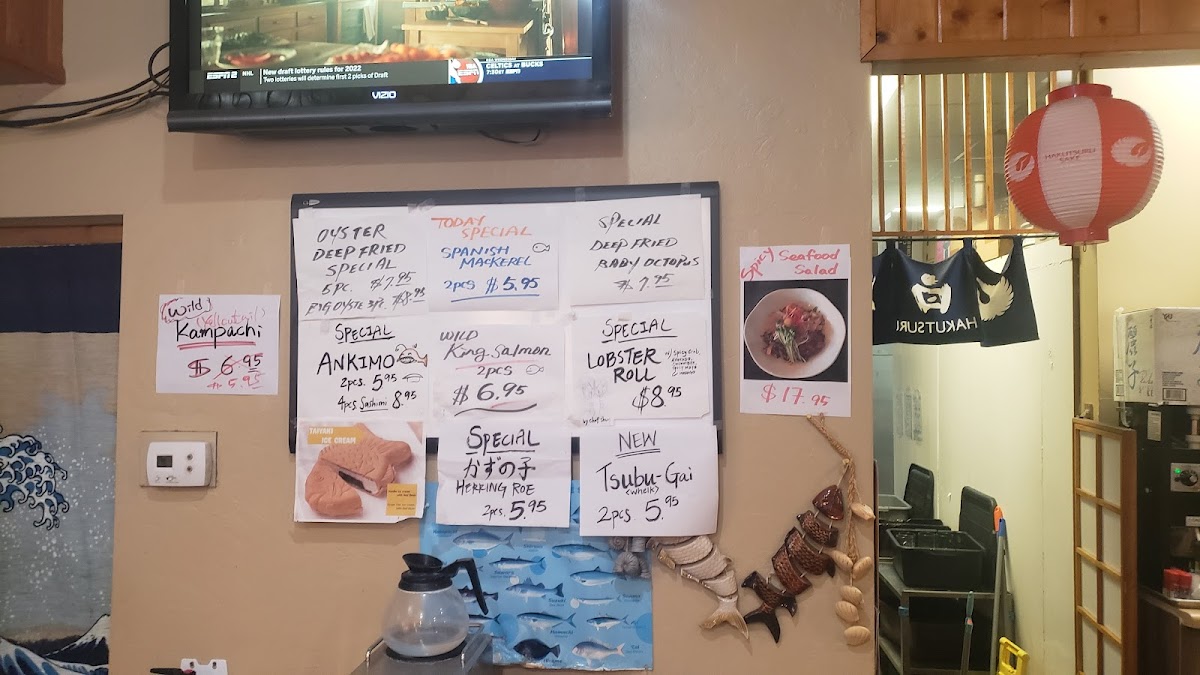 ESPN 2
NHL
New draft lottery rules for 2022
Two lotteries will determine first 2 picks of Draft
CELTICS AT BUCKS
7:30ET ESPN
VIZIO
HAKUTSURU
SAKE
HAKUTSURU
OYSTER
DEEP FRIED
SPECIAL
5 PC. $7.95
BIG OYSTER 3PC. $8.95
TODAY
SPECIAL
SPANISH
MACKEREL
2PCS $5.95
SPECIAL
DEEP FRIED
BABY OCTOPUS
$7.95
Spicy Seafood
Salad
$17.95
Wild
(Yellowtail)
Kampachi
$6.95
SPECIAL
ANKIMO
2pcs. 5.95
4pcs Sashimi 8.95
WILD
King Salmon
2pcs
$6.95
SPECIAL
LOBSTER
ROLL
$8.95
TAIYAKI
ICE CREAM
SPECIAL
かずの子
HERRING ROE
2pcs. 5.95
NEW
Tsubu-Gai
(whelk)
2pcs. 5.95